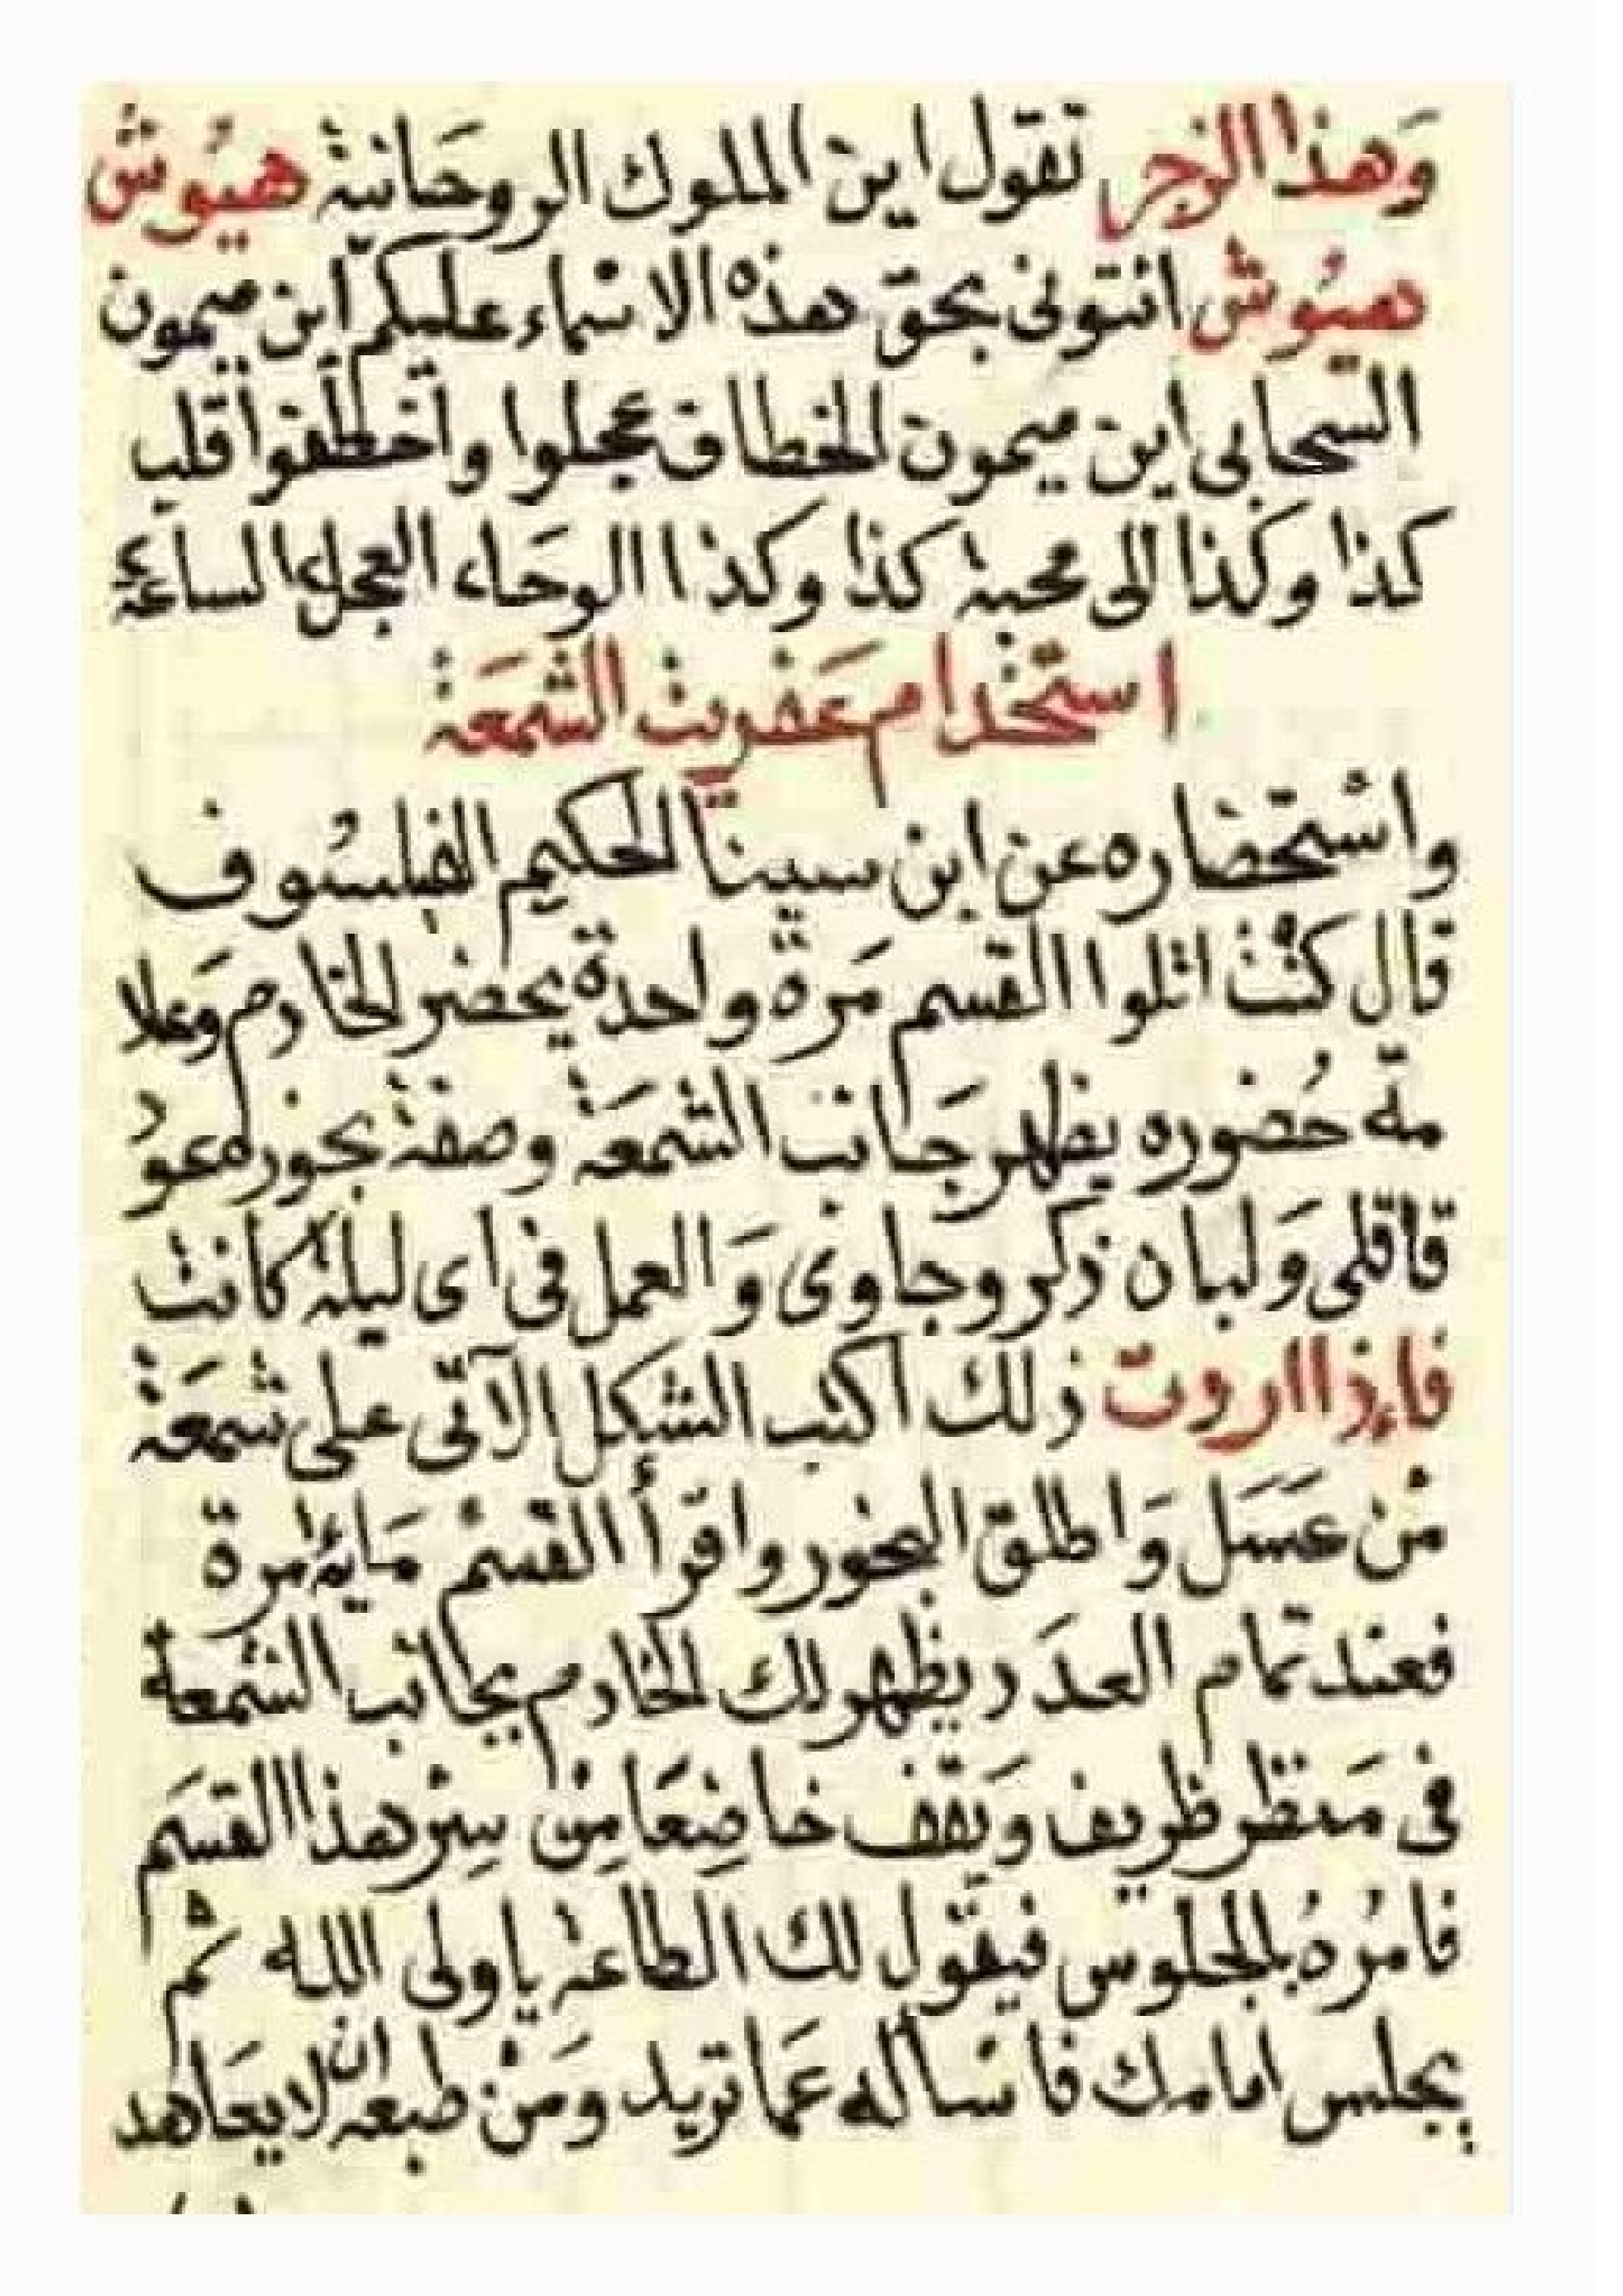 وَهذا الزجر تقول اين الملوك الروحَانية هيُوش
هيُوش ائتونى بحق هذه الاسماء عليكم اين ميمون
السحابى اين ميمون الخطاف عجلوا واخطفوا قلب
كذا وكذا الى محبة كذا وكذا الوحَاء العجل الساعة
استخدام عَفريت الشمعَة
واستحضاره عن ابن سينا الحكيم الفيلسُوف
قال كنت اتلوا القسم مَرة واحدة يحضر الخادم وَعلا
مة حُضوره يظهر جَانب الشمعَة وصفة بخوره عوُد
قاقلى وَلبان ذكر وجاوى وَالعمل فى اى ليلة كانت
فاءذا اردت ذلك اكتب الشكل الآتى على شمعَة
من عسَل وَاطلق البخور واقرأ القسم مَاية مرة
فعند تمام العدَد يظهر لك الخادم بجانب الشمعة
فى مَنظر ظريف وَيقف خاضِعَا مِن سِر هذا القسَم
فامُرهُ بالجلوس فيقول لك الطاعة ياولى الله ثم
يجلس امامك فاسأله عمَا تريد وَمَن طبعه ان لا يعَاهد